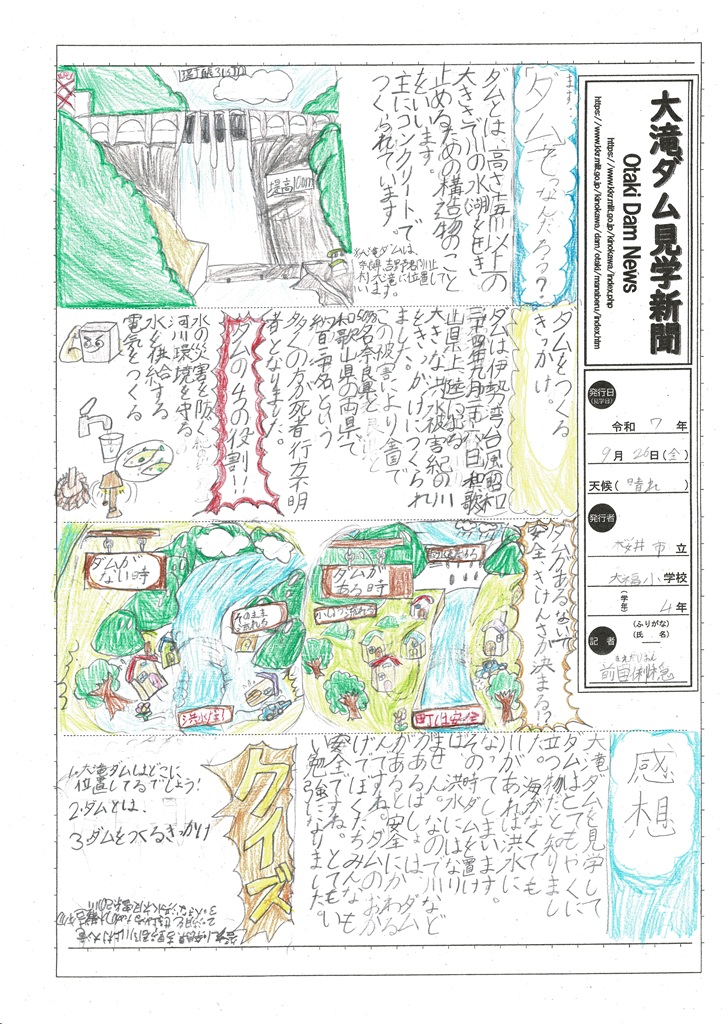 大滝ダム見学新聞
Otaki Dam News
https://www.kkr.mlit.go.jp/kinokawa/index.php
https://www.kkr.mlit.go.jp/kinokawa/dam/otaki/manaberu/index.htm
発行日
(見学日)
令和 7 年
9月 26日(金)
天候( 晴れ )
発行者
桜井市 立
大福小 学校
(学年) 4年
記者
(ふりがな)
(氏 名)
まず…
「ダム」てなんだろう?
ダムとは、高さ十五m以上の
大きさで川の水(湖)を引き
止めるための構造物のこと
をいいます。
主にコンクリートで
つくられています。
※大滝ダムは、
位置して
います。
堤高100m
ダムをつくる
きっかけ。
ダムは伊勢湾台風(昭和
三十四年九月二十六日和歌
山県上
大きな洪水被害紀の川
ときっかけにつくられ
ました。
この被害により全国で
名奈良県と
和歌山県の両県で
名という
多くの方が死者・行方不明
者となりました。
ダムの4つの役割!!
水の災害を防ぐ
河川環境を守る
水を供給する
電気をつくる
ダムがあるないで
安全、きけんさが決まる!?
ダムが
ある時
町は安全
ダムが
ない時
そのまま
流れる
感想
大滝ダムを見学して
ダムはとてもやくに
立つ物だと知りまし
た。海がなくても
川があれば洪水に
なってしまいます。
その時ダムを置け
ば、洪水にはなり
ません。なので川など
があるばしょは、ダム
があると安全にかわる
んですね。ダムのおか
げでぼくたちみんなも
安全ですね。とてもい
い勉強になりました。
クイズ
1.大滝ダムはどこに
位置してるでしょう!
2.ダムとは、
3.ダムをつくるきっかけ